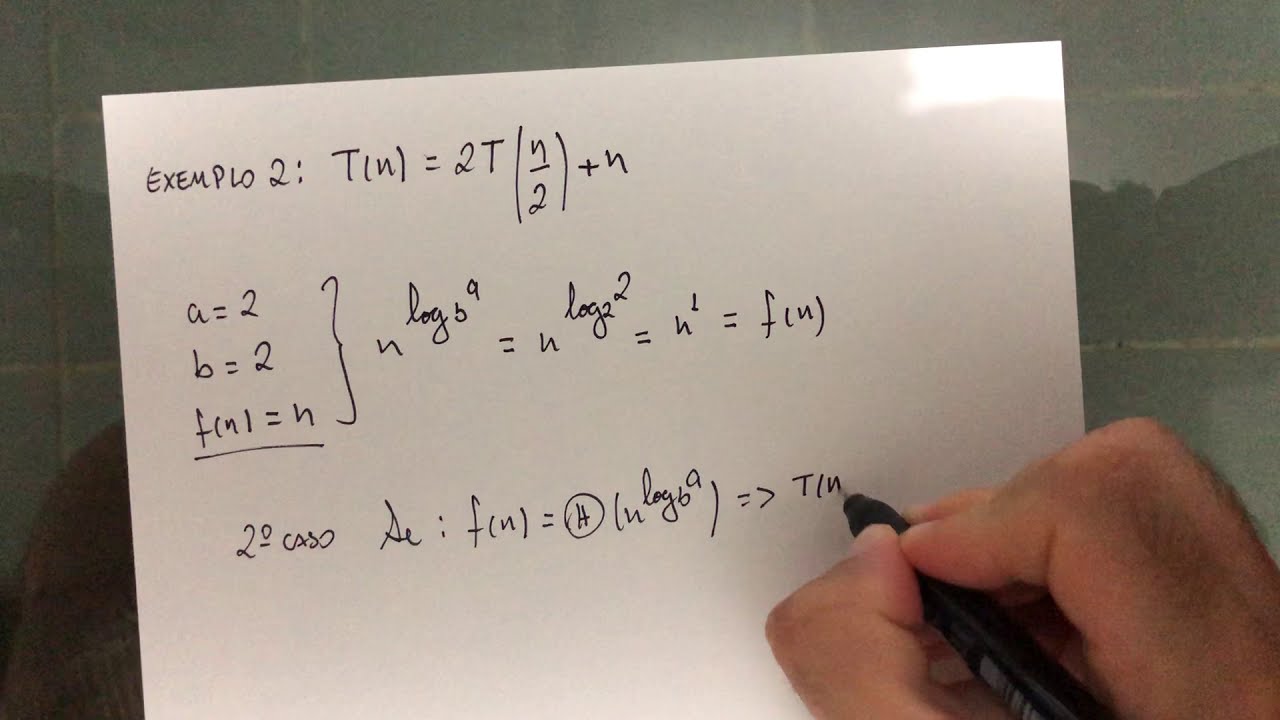 EXEMPLO 2: T(n) = 2T(n/2) + n
a = 2
b = 2
f(n) = n
} n^{log_b a} = n^{log_2 2} = n^1 = f(n)
2º CASO Se : f(n) = Θ (n^{log_b a}) => T(n